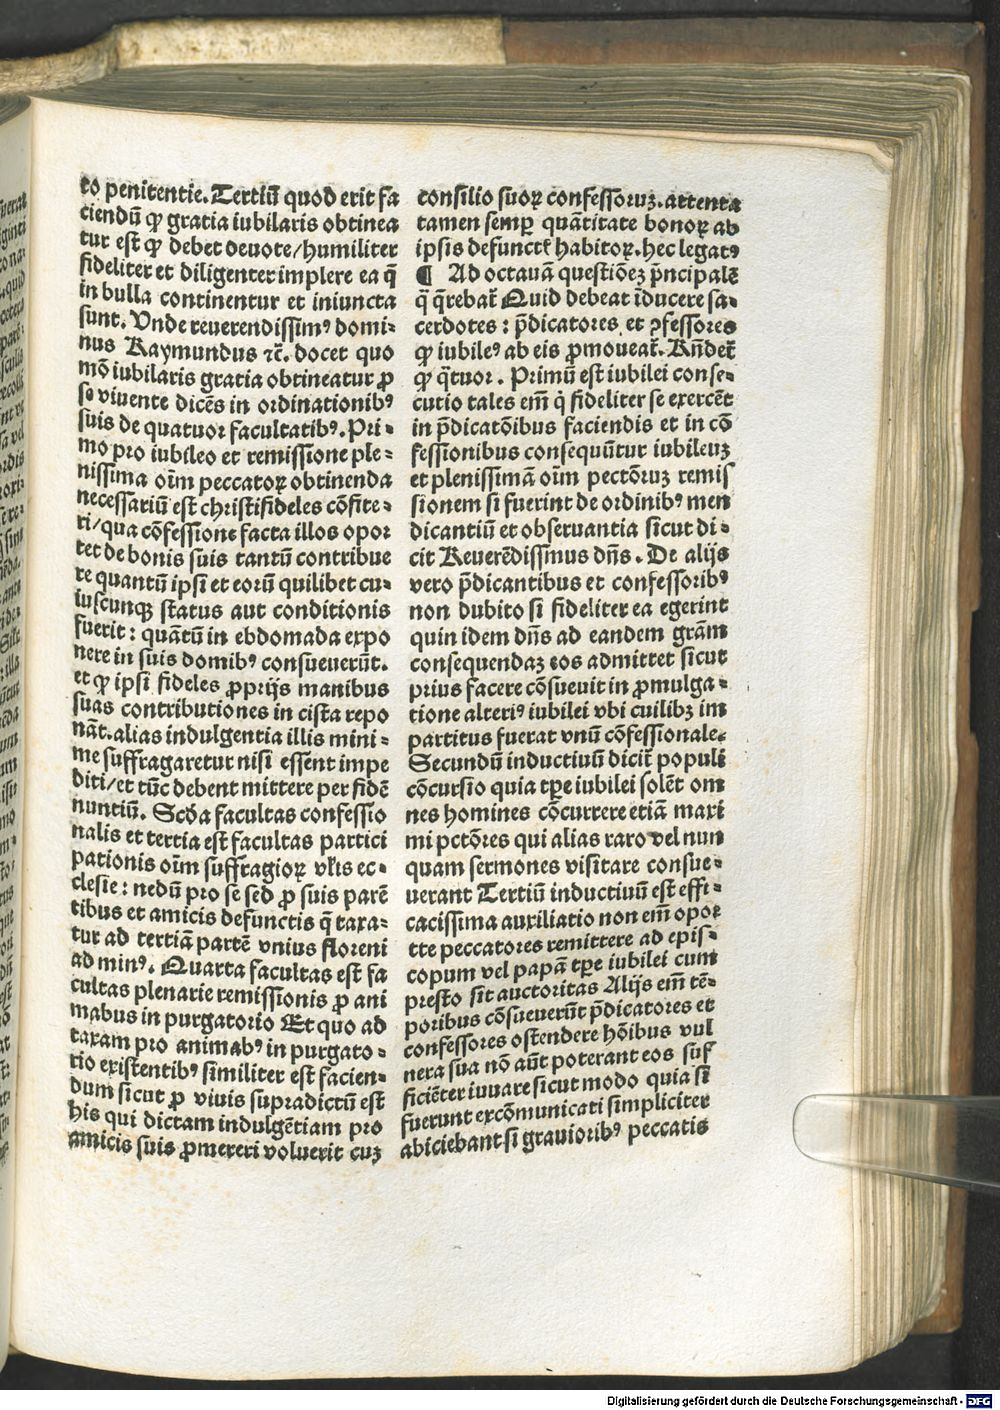 to penitentie. Tertiū quod erit fa
ciendū ꝙ gratia iubilaris obtinea
tur est ꝙ debet deuote/humiliter
fideliter et diligenter implere ea q̄
in bulla continentur et iniuncta
sunt. Unde reuerendissimꝰ domi⸗
nus Raymundus ⁊c̄. docet quo
mō iubilaris gratia obtineatur ꝓ
se viuente dicēs in ordinationibꝰ
suis de quatuor facultatibꝰ. Pri⸗
mo pro iubileo et remissione ple⸗
nissima oīm peccatoꝝ obtinenda
necessariū est christifideles cōfite⸗
ri/qua cōfessione facta illos opor
tet de bonis suis tantū contribue
re quantū ipsi et eorū quilibet cu⸗
iuscunqꝫ status aut conditionis
fuerit: quātū in ebdomada expo
nere in suis domibꝰ consueuerūt.
et ꝙ ipsi fideles ꝓprijs manibus
suas contributiones in cista repo
nāt. alias indulgentia illis mini⸗
me suffragaretur nisi essent impe
diti/et tūc debent mittere per fidē
nuntiū. Scďa facultas confessio
nalis et tertia est facultas partici
pationis oīm suffragioꝝ vƚis ec⸗
clesie: nedū pro se sed ꝓ suis parē
tibus et amicis defunctis q̄ taxa⸗
tur ad tertiā partē vnius floreni
ad minꝰ. Quarta facultas est fa
cultas plenarie remissionis ꝓ ani
mabus in purgatorio Et quo ad
taxam pro animabꝰ in purgato⸗
rio existentibꝰ similiter est facien⸗
dum sicut ꝓ viuis supradictū est
his qui dictam indulgētiam pro
amicis suis ꝓmereri voluerit cuꝫ
consilio suoꝝ confessoruꝫ. attenta
tamen semꝑ quātitate bonoꝝ ab
ipsis defunctꝭ habitoꝝ. hec legatꝰ
¶ Ad octauā questiōeꝫ p̄ncipalē
q̄ q̄rebat̄ Quid debeat īducere sa⸗
cerdotes: p̄dicatores et ꝯfessores
ꝙ iubileꝰ ab eis ꝓmoueat̄. Rn̄det̄
ꝙ q̄tuor. Primū est iubilei conse⸗
cutio tales em̄ q̇ fideliter se exercēt
in p̄dicatōibus faciendis et in cō
fessionibus consequūtur iubileuꝫ
et plenissimā oīm pectōruꝫ remis
sionem si fuerint de ordinibꝰ men
dicantiū et obseruantia sicut di⸗
cit Reuerēdissmus dn̄s. De alijs
vero p̄dicantibus et confessoribꝰ
non dubito si fideliter ea egerint
quin idem dn̄s ad eandem grām
consequendaꝫ eos admittet sicut
prius facere cōsueuit in ꝓmulga⸗
tione alteriꝰ iubilei vbi cuilibꝫ im
partitus fuerat vnū cōfessionale.
Secundū inductiuū dicit̄ populi
cōcursio quia tp̄e iubilei solēt om
nes homines cōcurrere etiā maxi
mi pctōres qui alias raro vel nun
quam sermones visitare consue⸗
uerant Tertiū inductiuū est effi⸗
cacissima auxiliatio non em̄ opor
tte peccatores remittere ad epis⸗
copum vel papā tp̄e iubilei cum
presto sit auctoritas Alijs em̄ tē⸗
poribus cōsueuerūt p̄dicatores et
confessores ostendere hōibus vul
nera sua nō aūt poterant eos suf
ficiēter iuuare sicut modo quia si
fuerunt excōmunicati simpliciter
abiciebant si grauioribꝰ peccatis
Digitalisierung gefördert durch die Deutsche Forschungsgemeinschaft - DFG